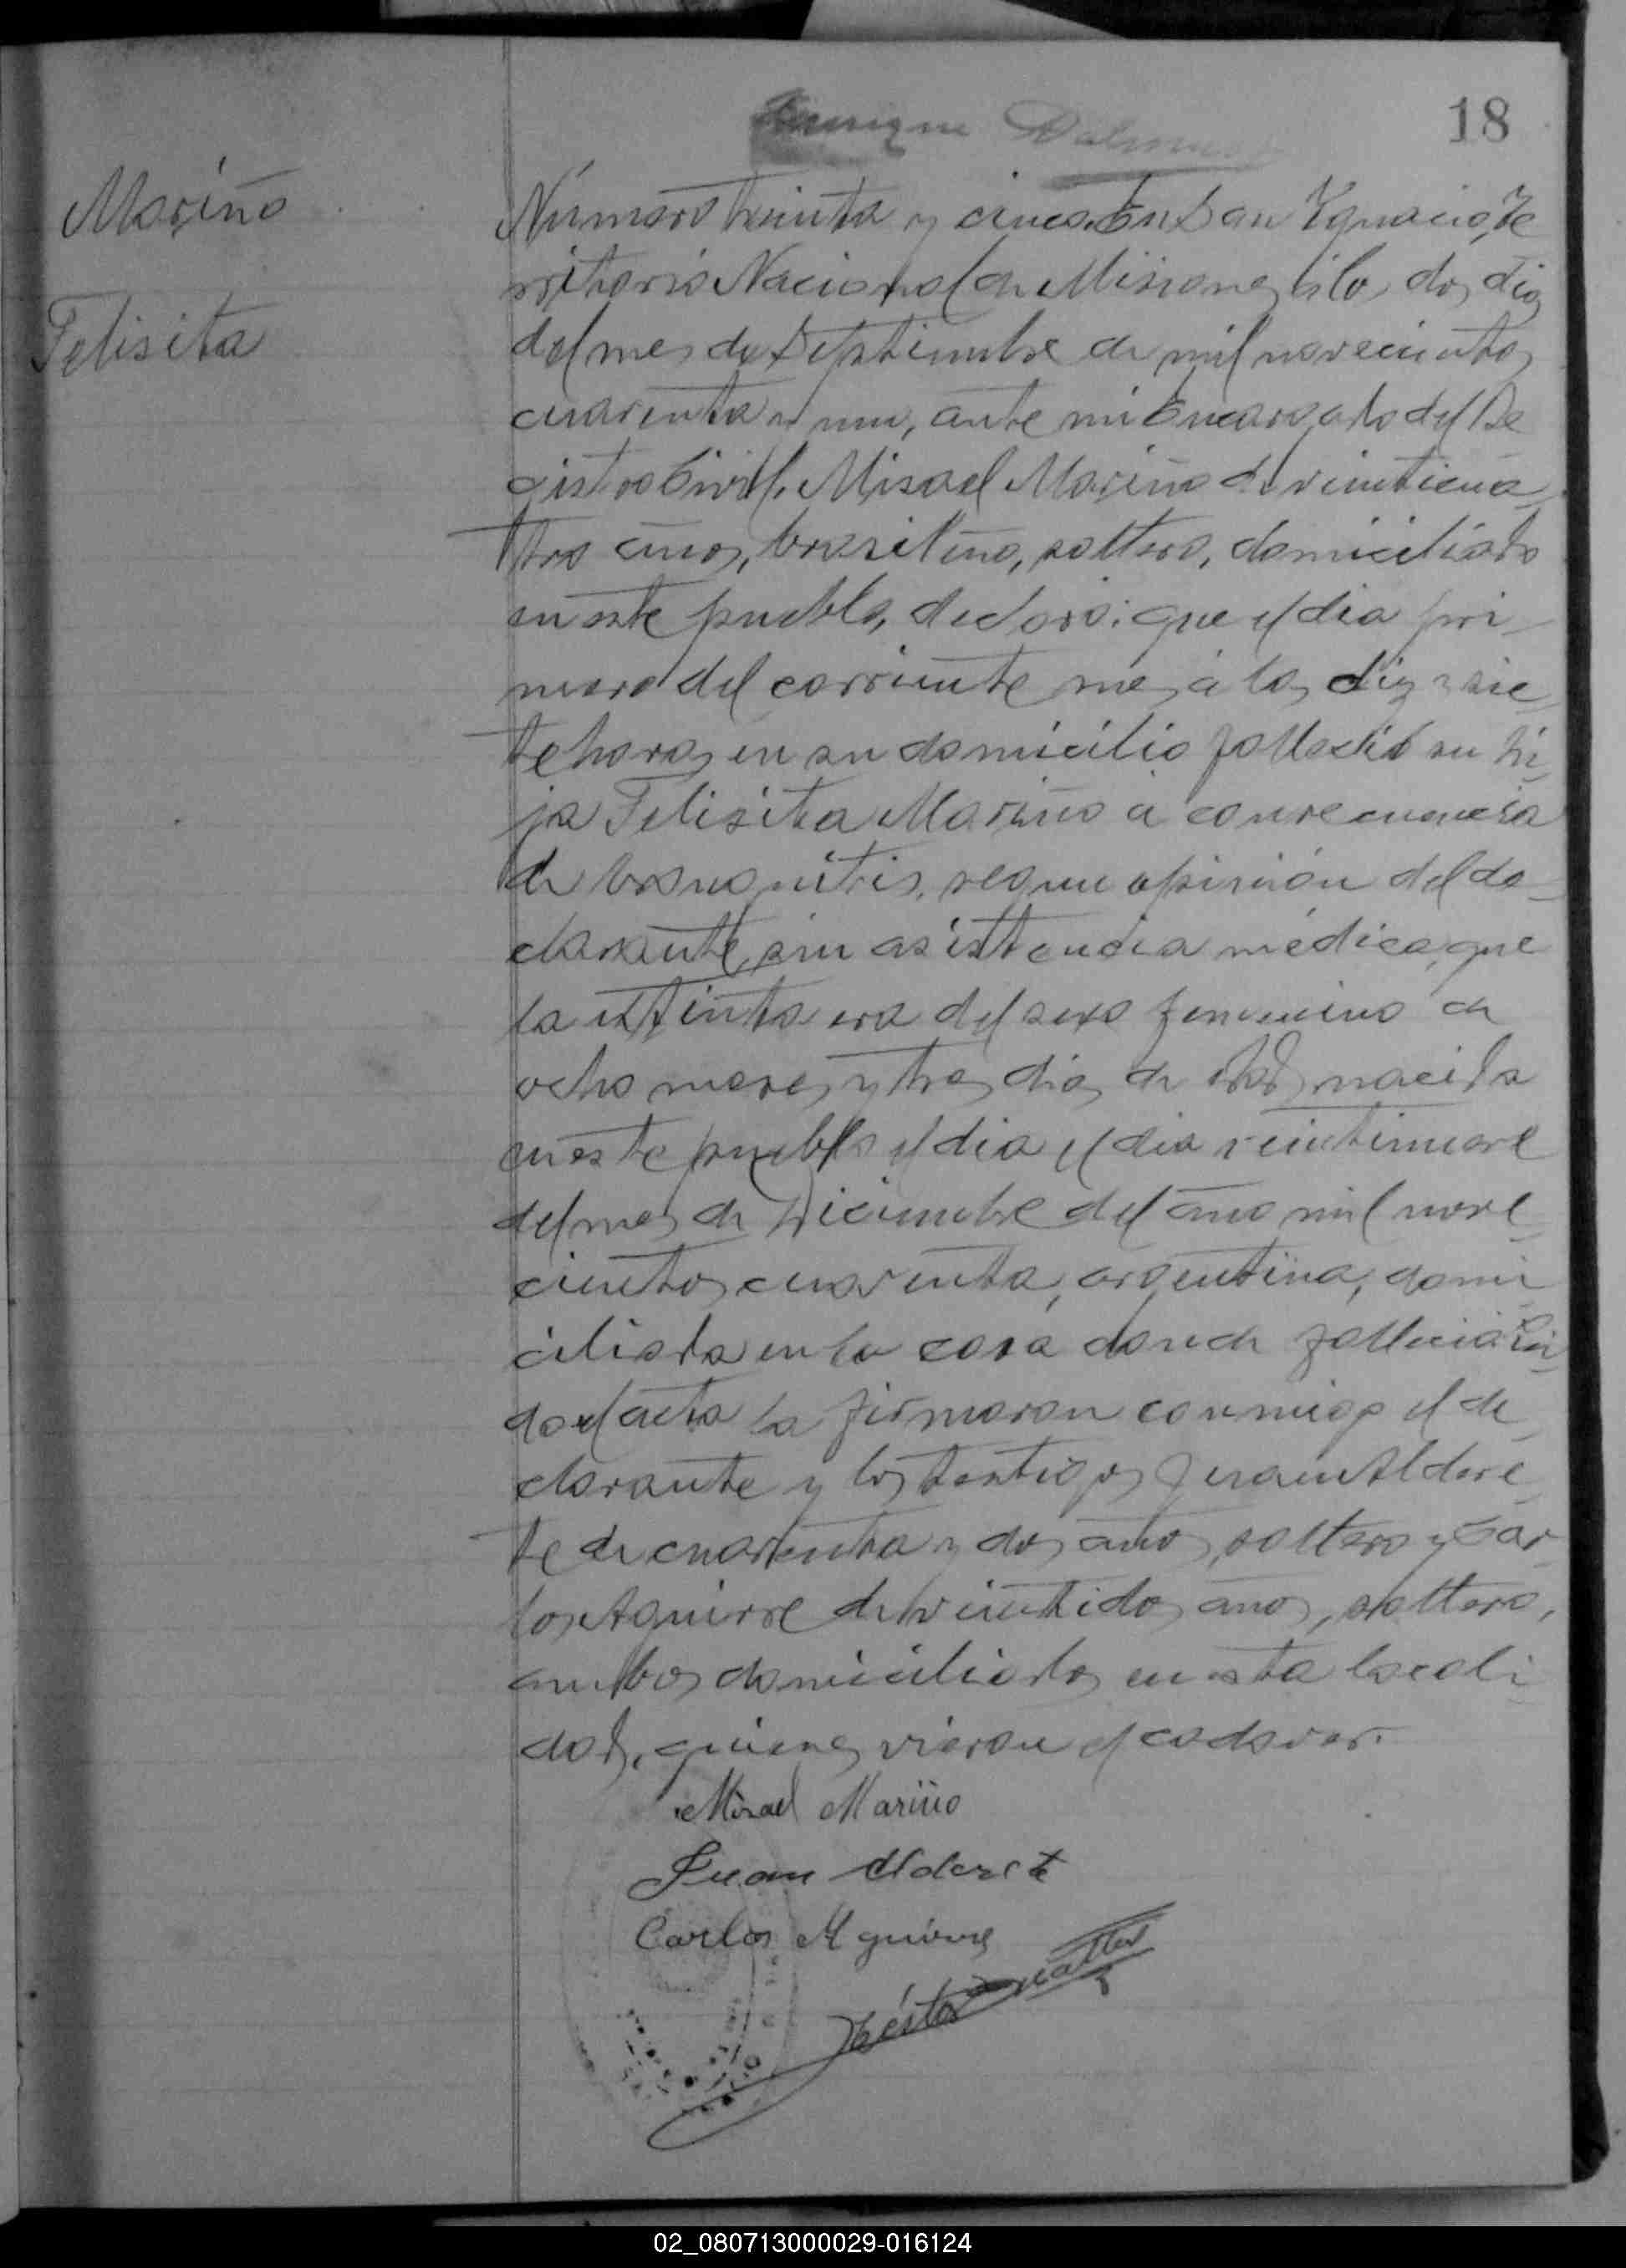 18
Mariño
Felisita
Número treinta y cinco. En San Ygnacio, Te
rritorio Nacional de Misiones á los dos dias
del mes de Septiembre de mil novecientos
cuarenta y uno, ante mi Encargado del Re
gistro Civil, Misael Mariño de veinticua-
tro años, brasileño, soltero, domiciliado
en este pueblo, declara: que el dia pri-
mero del corriente mes á las diez y sie-
te horas en su domicilio falleció su hi-
ja Felisita Mariño á consecuencia
de bronquitis, segun opinión del de-
clarante, sin asistencia médica, que
la extinta era del sexo femenino de
ocho meses y tres dias de edad, nacida
en este pueblo el dia el dia veintinueve
del mes de Diciembre del año mil nove-
cientos cuarenta, argentina, domi-
ciliada en la casa donde falleció. Leí-
da el acta la firmaron conmigo el de-
clarante y los testigos Juan Aldere-
te de cuarenta y dos años, soltero y Car-
los Aguirre de veintidos años, soltero,
ambos domiciliados en esta locali-
dad, quienes vieron el cadaver.
Misael Mariño
Juan Alderete
Carlos Aguirre
02_080713000029-016124